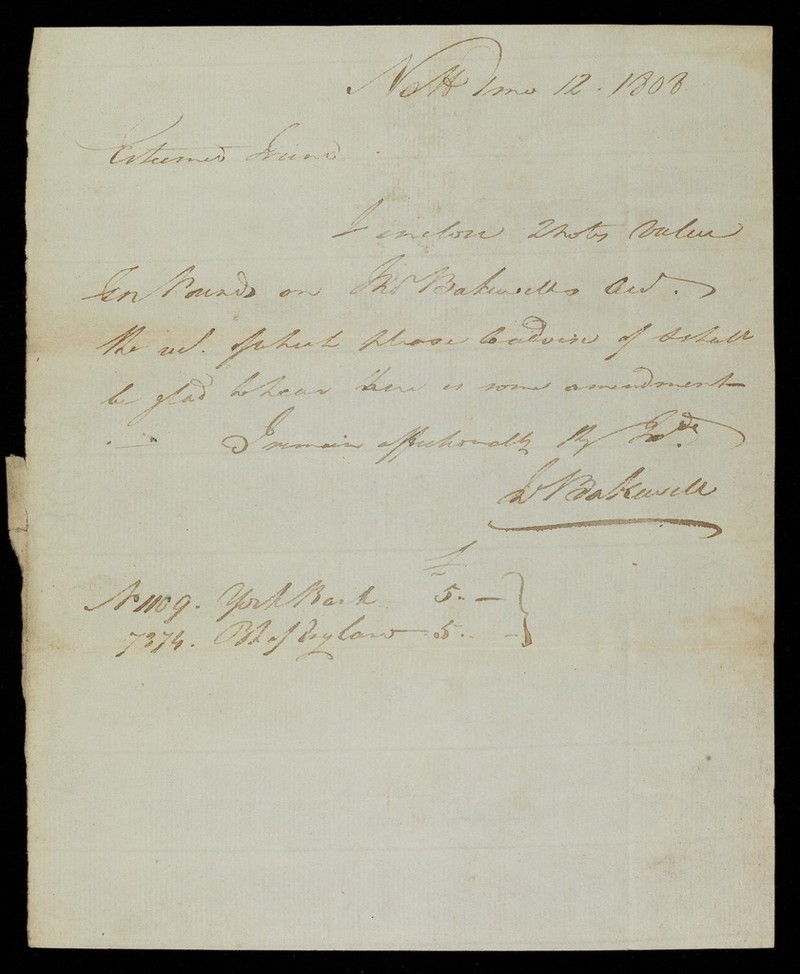 Nott 1mo 12. 1808
Esteemed Friend
I inclose 2 notes value
Ten Pounds on Thos Bakewells Act.
the rect. of which please to advise of & shall
be glad to hear there is some amendment
I remain affectionately thy Frd.
Bakewell
£
No 1109. York Bank 5. —
7374. Bk of England 5. -